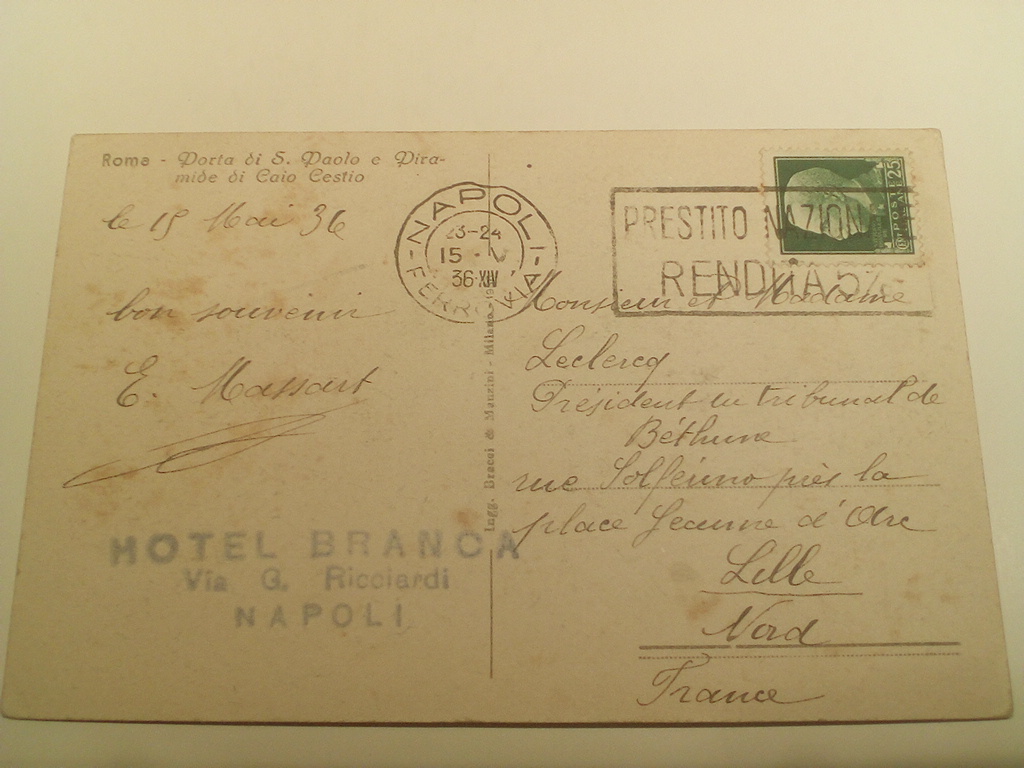 Roma - Porta di S. Paolo e Pira-
mide di Caio Cestio
le 15 Mai 36
bon souvenir
E. Massart
HOTEL BRANCA
Via G. Ricciardi
NAPOLI
NAPOLI
23-24
15 - V
36·XIV
FERROVIA
Ingg. Bracci de Manzini - Milano
PRESTITO NAZION
RENDITA 5%
25
Monsieur et Madame
Leclercq
Président du tribunal de
Béthune
rue Solférino près la
place Jeanne d'Arc
Lille
Nord
France